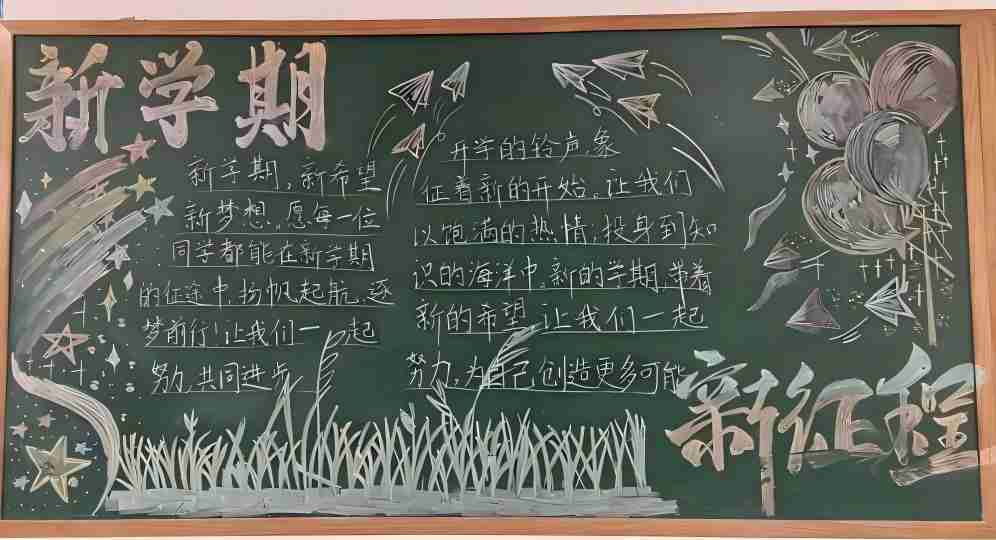 新学期
新学期，新希望
新梦想。愿每一位
同学都能在新学期
的征途中，扬帆起航，逐
梦前行！让我们一起
努力，共同进步
开学的铃声，象
征着新的开始。让我们
以饱满的热情，投身到知
识的海洋中。新的学期，带着
新的希望，让我们一起
努力，为自己创造更多可能
新征程